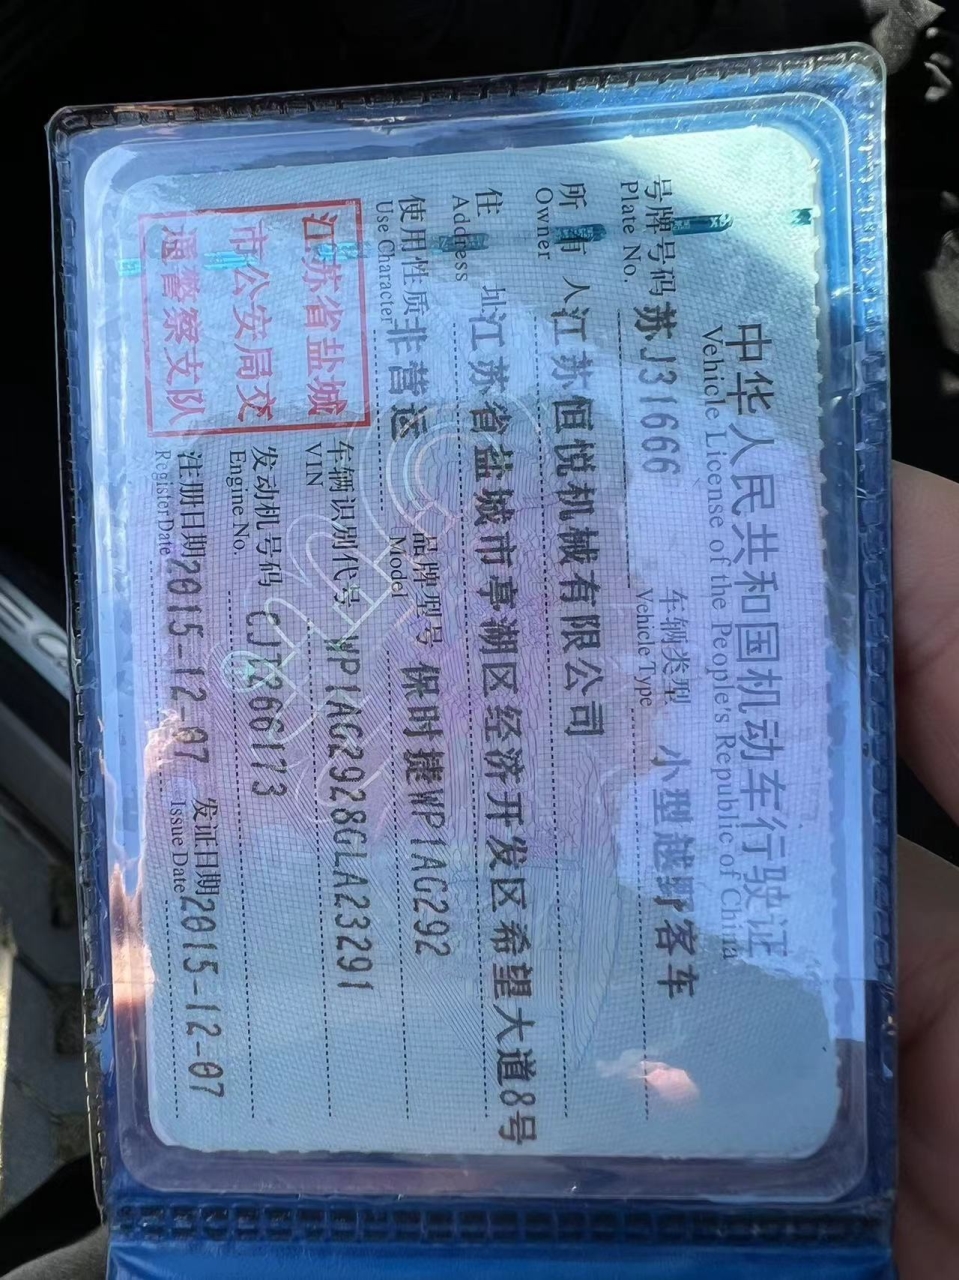 中华人民共和国机动车行驶证
Vehicle License of the People's Republic of China
号牌号码 苏J31666 车辆类型 小型越野客车
Plate No. Vehicle Type
所有人 江苏恒悦机械有限公司
Owner
住址 江苏省盐城市亭湖区经济开发区希望大道8号
Address
使用性质 非营运 品牌型号 保时捷WP1AG292
Use Character Model
江苏省盐城
市公安局交
通警察支队
车辆识别代号 WP1AG2928GLA23291
VIN
发动机号码
Engine No.
注册日期 2015-12-07 发证日期 2015-12-07
Register Date Issue Date